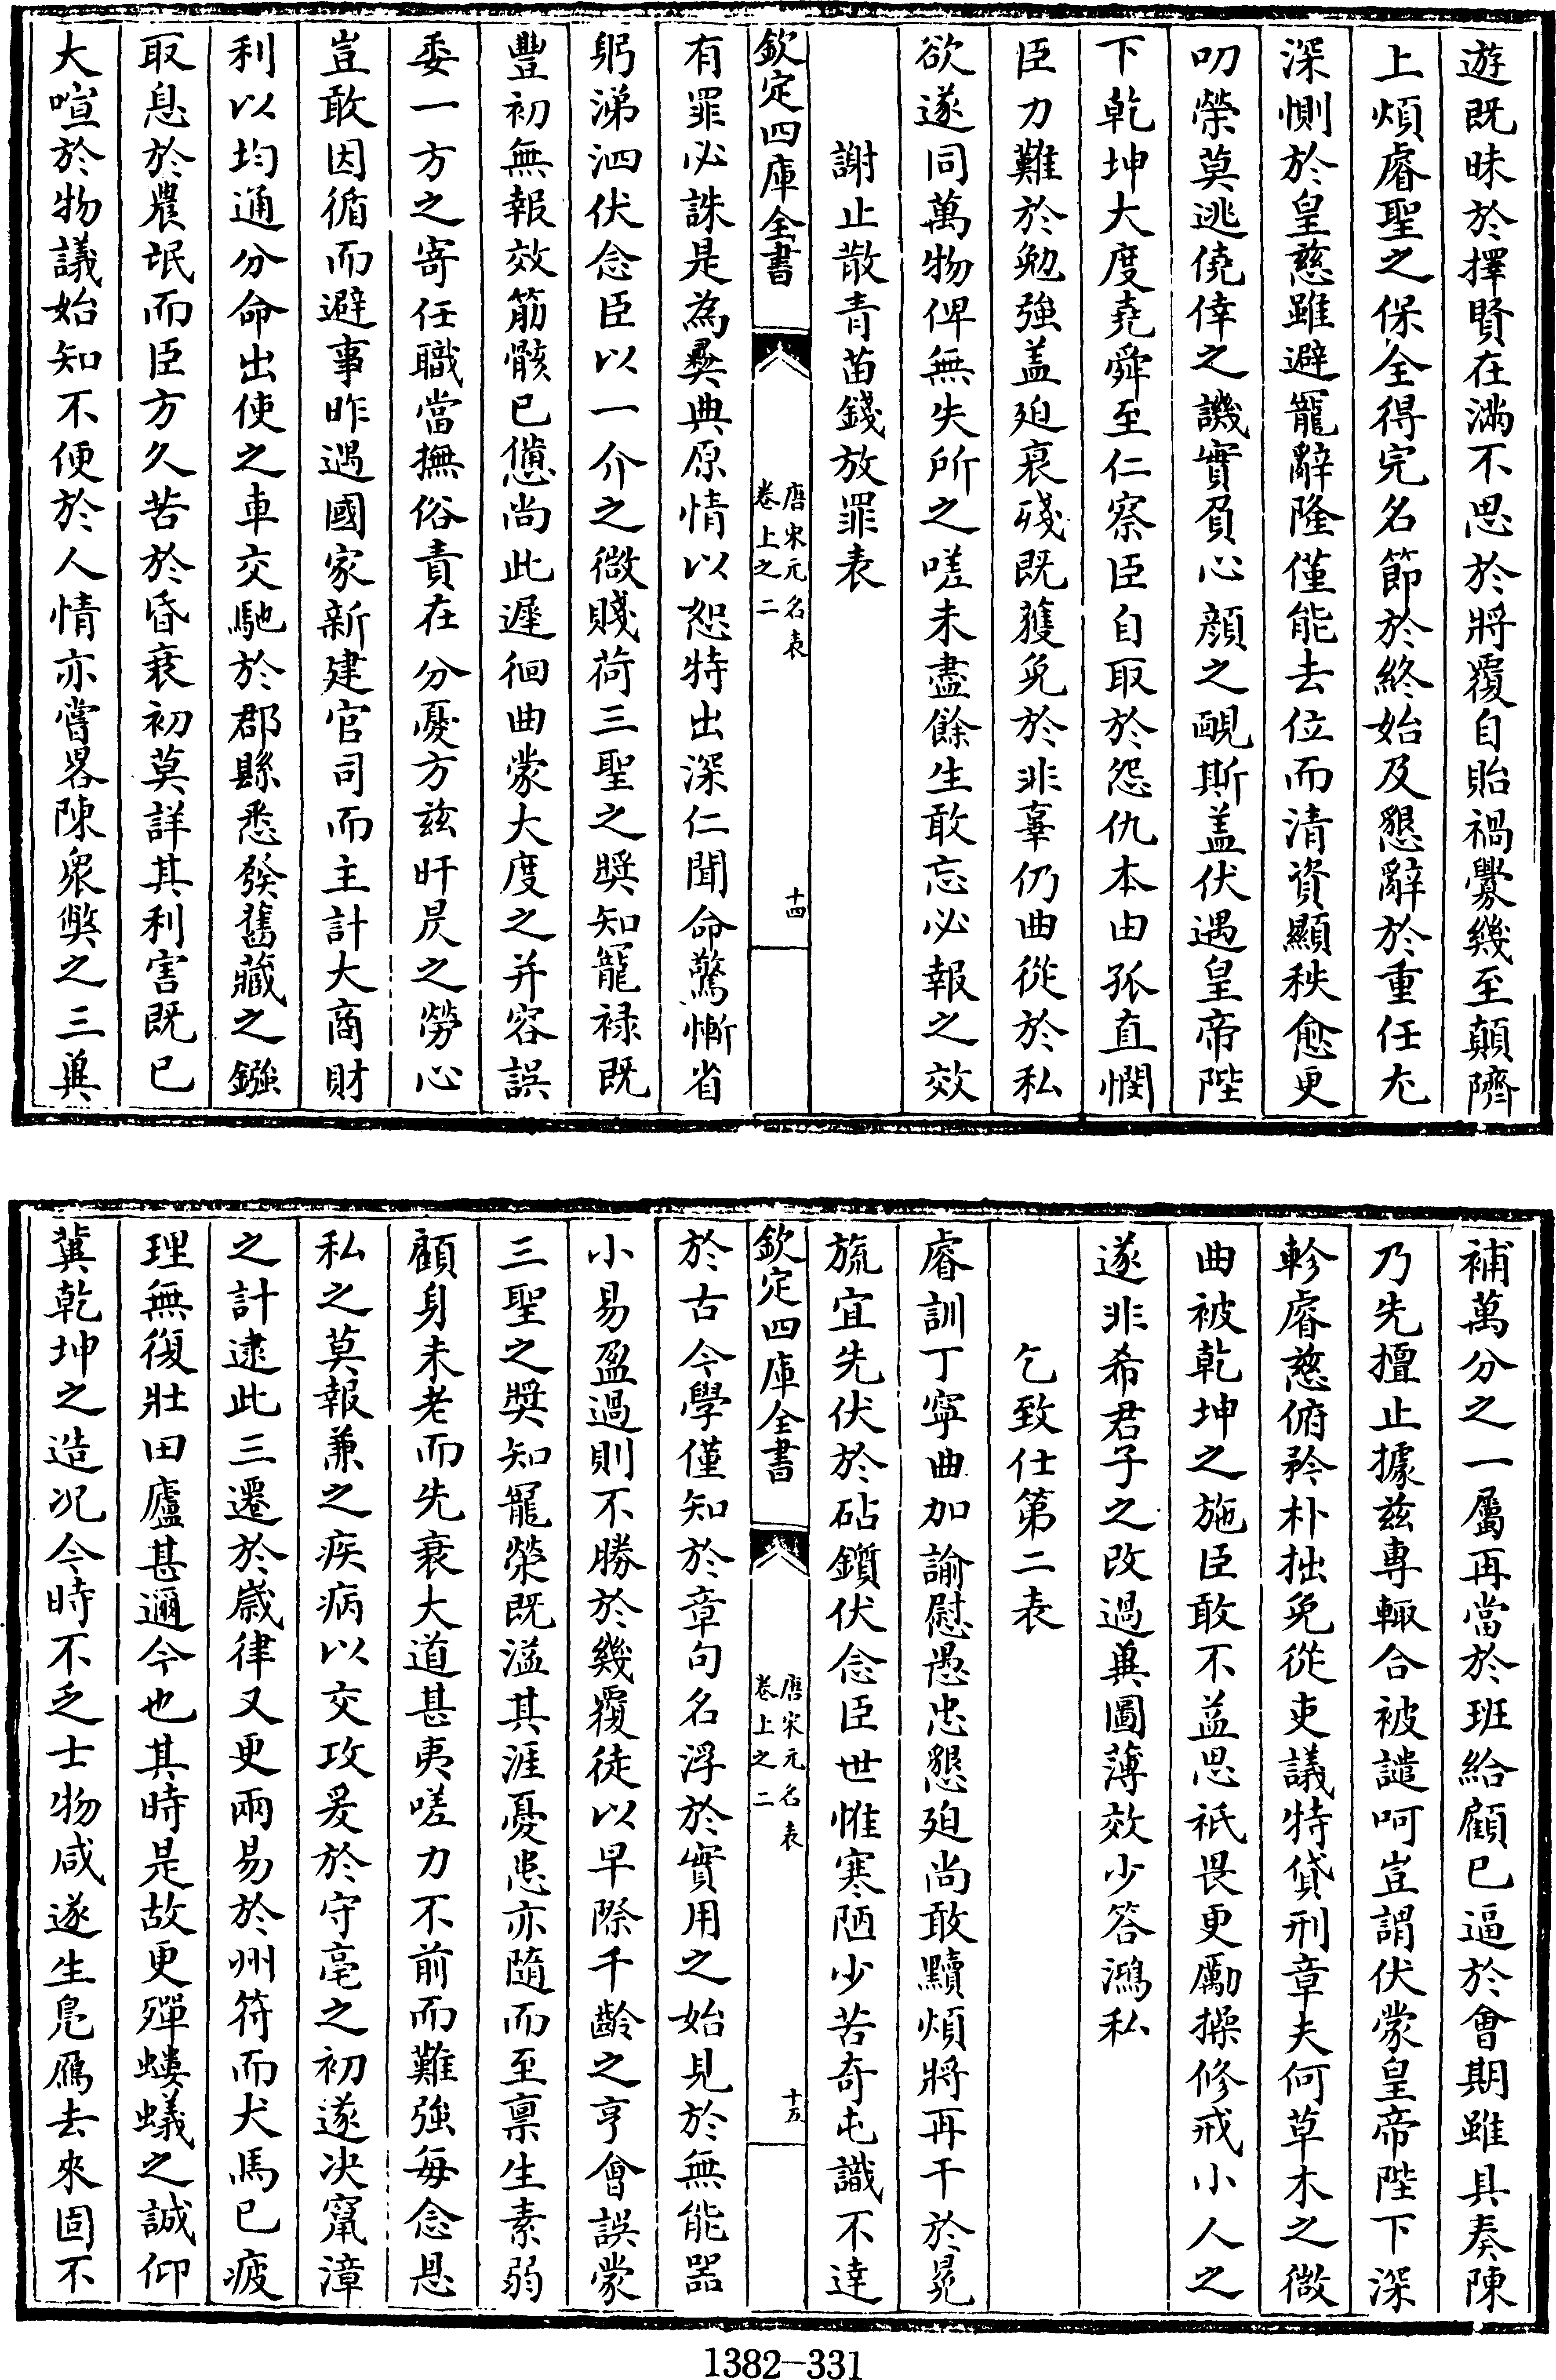 遊既昧於擇賢在滿不思於將覆自貽禍釁幾至顛隮
上煩睿聖之保全得完名節於終始及懇辭於重任尤
深惻於皇慈雖避寵辭隆僅能去位而清資顯秩愈更
叨榮莫逃僥倖之譏實負心顔之靦斯盖伏遇皇帝陛
下乾坤大度堯舜至仁察臣自取於怨仇本由孤直憫
臣力難於勉強盖廹衰殘既獲免於非辜仍曲從於私
欲遂同萬物俾無失所之嗟未盡餘生敢忘必報之效
謝止散青苗錢放罪表
欽定四庫全書
唐宋元名表
卷上之二
十四
有罪必誅是為彞典原情以恕特出深仁聞命驚慚省
躬涕泗伏念臣以一介之微賤荷三聖之奬知寵禄既
豐初無報效筋骸已憊尚此遲徊曲蒙大度之并容誤
委一方之寄任職當撫俗責在分憂方兹旰昃之勞心
豈敢因循而避事昨遇國家新建官司而主計大商財
利以均通分命出使之車交馳於郡縣悉發舊藏之鏹
取息於農氓而臣方久苦於昏衰初莫詳其利害既已
大喧於物議始知不便於人情亦嘗畧陳衆獘之三兾
補萬分之一屬再當於班給顧已逼於會期雖具奏陳
乃先擅止據兹專輒合被譴呵豈謂伏蒙皇帝陛下深
軫睿慈俯矜朴拙免從吏議特貸刑章夫何草木之微
曲被乾坤之施臣敢不益思祇畏更勵操修戒小人之
遂非希君子之改過兾圖薄效少答鴻私
乞致仕第二表
睿訓丁寧曲加諭慰愚忠懇廹尚敢黷煩將再干於冕
旒宜先伏於砧鑕伏念臣世惟寒陋少苦奇屯識不達
欽定四庫全書
唐宋元名表
卷上之二
十五
於古今學僅知於章句名浮於實用之始見於無能器
小易盈過則不勝於幾覆徒以早際千齡之亨會誤蒙
三聖之奬知寵榮既溢其涯憂患亦隨而至禀生素弱
顧身未老而先衰大道甚夷嗟力不前而難強每念恩
私之莫報兼之疾病以交攻爰於守亳之初遂决竄漳
之計逮此三遷於歲律又更兩易於州符而犬馬已疲
理無復壯田廬甚邇今也其時是故更殫螻蟻之誠仰
冀乾坤之造况今時不乏士物咸遂生凫鴈去來固不
1382-331